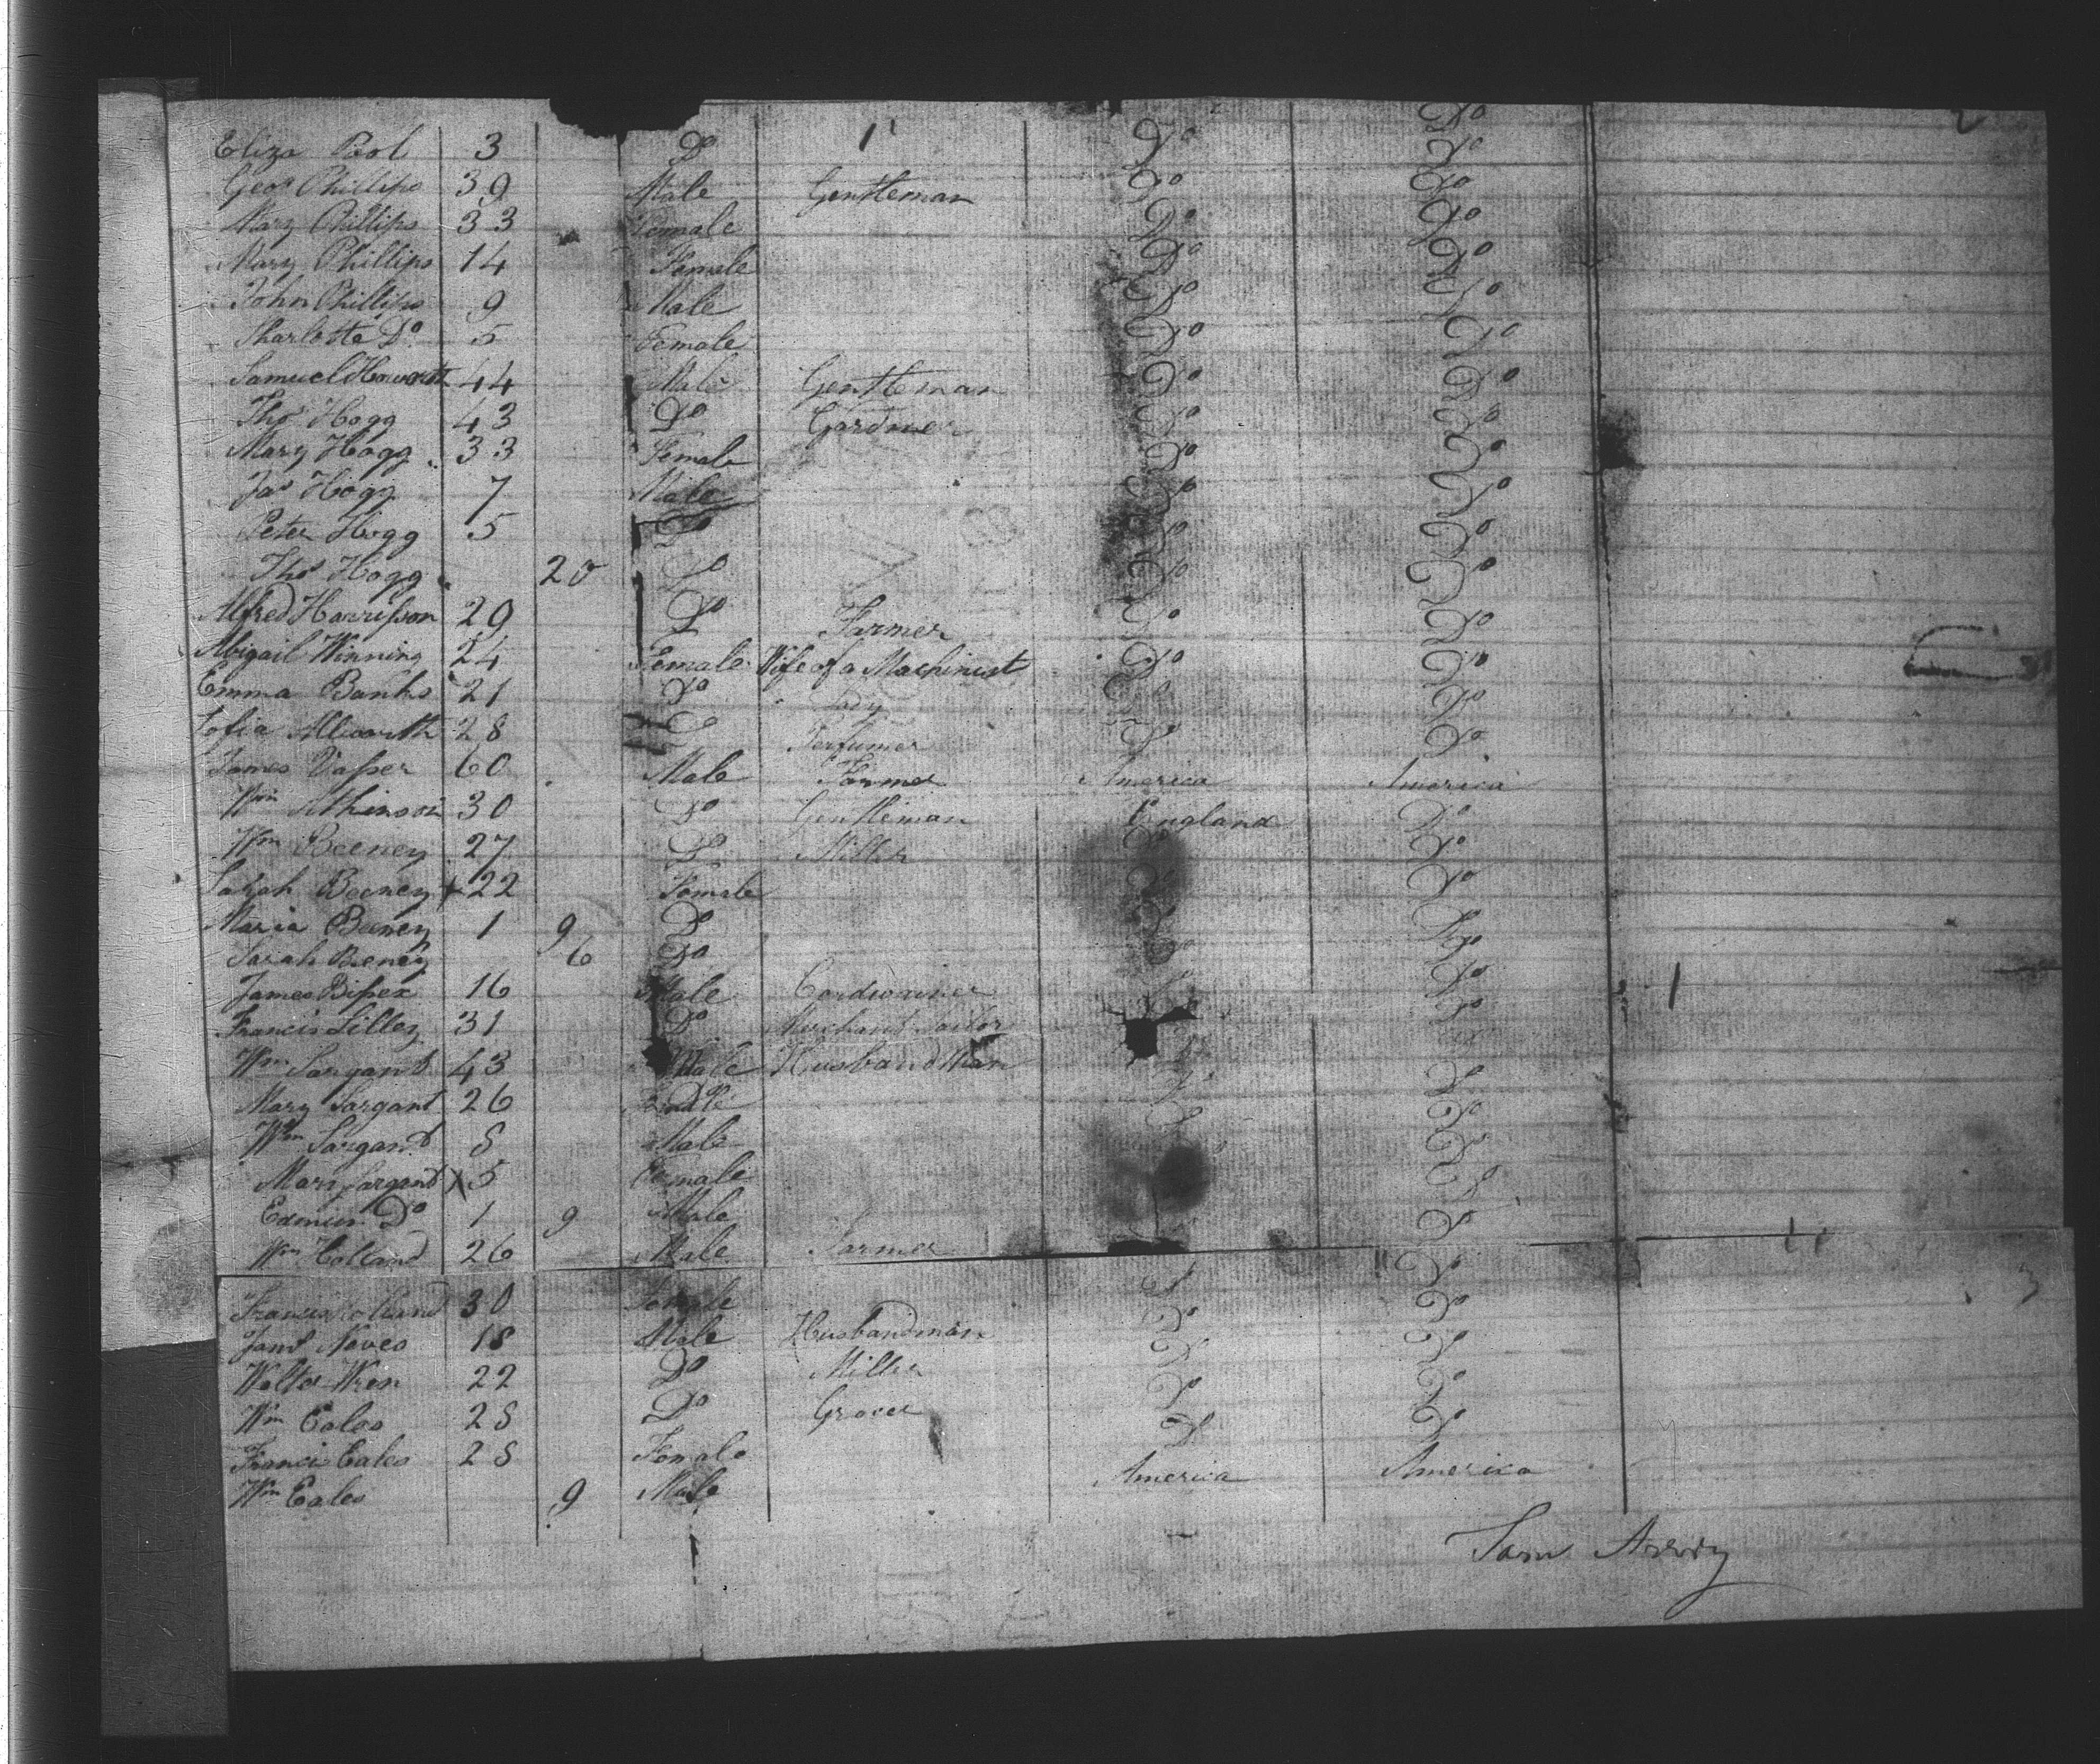 Do
Eliza Pool 3 Do 1 Do Do
Geo. Phillips 39 Male Gentleman Do Do
Mary Phillips 33 Female Do Do
Mary Phillips 14 Female Do Do
John Phillips 9 Male Do Do
Charlotte Do 5 Female Do Do
Samuel Howarth 44 Male Gentleman Do Do
Thos Hogg 43 Do Gardner Do Do
Mary Hogg 33 Female Do Do
Jas Hogg 7 Male Do Do
Peter Hogg 5 Do Do Do
Thos Hogg 20 Do Do Do
Alfred Harrisson 29 Do Farmer Do Do
Abigail Winning 24 Female Wife of a Machinist Do Do
Emma Banks 21 Do Lady Do Do
Sofia Allworth 28 Do Perfumer Do Do
James Vasser 60 Male Farmer America America
Wm Atkinson 30 Do Gentleman England Do
Wm Beeney 27 Do Miller Do Do
Sarah Beeney 22 Female Do Do
Maria Beeney 1 9 Do Do Do
Sarah Beeney 6 Do Do Do
James 16 Male Cordwainer Do Do
Francis Lilley 31 Do Merchant Tailor Do
Wm Sargant 43 Male Husbandman Do Do
Mary Sargant 26 Do Do
Wm Sargant 8 Male Do Do
Mary Sargant 5 Female Do
Edmun Do 1 9 Male Do
Wm Holland 26 Male Farmer Do
Francis Holland 30 Female Do Do
Neves 18 Male Husbandman Do Do
Walter Wren 22 Do Miller Do Do
Wm Eales 28 Do Grocer Do Do
Francis Eales 28 Female Do Do
Wm Eales 9 Male America America
Sam Avery